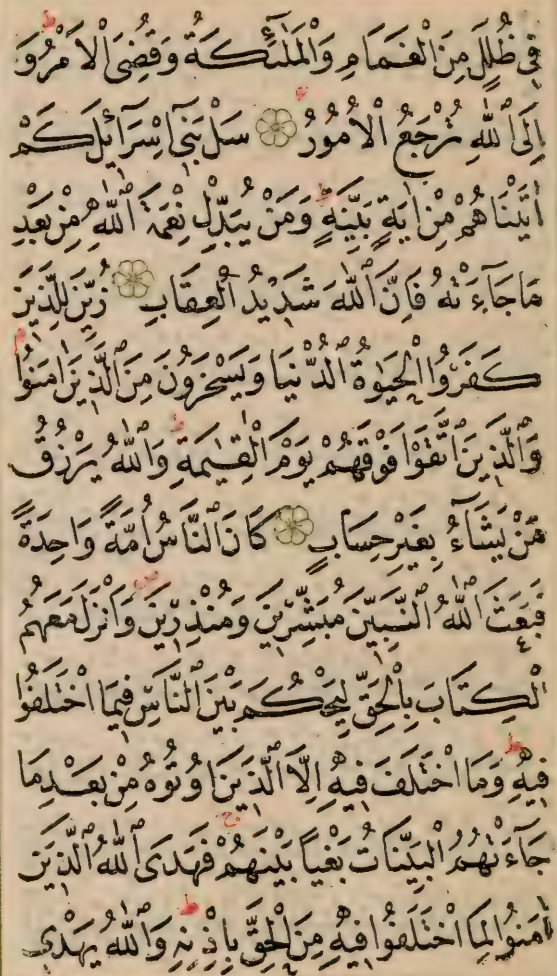 فِي ظُلَلٍ مِنَ الْغَمَامِ وَالْمَلٰٓئِكَةُ وَقُضِيَ الْاَمْرُ ط وَ
اِلَى اللّٰهِ تُرْجَعُ الْاُمُورُ سَلْ بَنِٓي اِسْرَآئِلَ كَمْ
اٰتَيْنَاهُمْ مِنْ اٰيَةٍ بَيِّنَةٍ ط وَمَنْ يُبَدِّلْ نِعْمَةَ اللّٰهِ مِنْ بَعْدِ
مَا جَآءَتْهُ فَاِنَّ اللّٰهَ شَدِيْدُ الْعِقَابِ زُيِّنَ لِلَّذِيْنَ
كَفَرُوا الْحَيٰوةُ الدُّنْيَا وَيَسْخَرُوْنَ مِنَ الَّذِيْنَ اٰمَنُوْا م
وَالَّذِيْنَ اتَّقَوْا فَوْقَهُمْ يَوْمَ الْقِيٰمَةِ ط وَاللّٰهُ يَرْزُقُ
مَنْ يَشَآءُ بِغَيْرِ حِسَابٍ كَانَ النَّاسُ اُمَّةً وَاحِدَةً
فَبَعَثَ اللّٰهُ النَّبِيّٖنَ مُبَشِّرِيْنَ وَمُنْذِرِيْنَ ص وَاَنْزَلَ مَعَهُمُ
الْكِتَابَ بِالْحَقِّ لِيَحْكُمَ بَيْنَ النَّاسِ فِيْمَا اخْتَلَفُوْا
فِيْهِ ط وَمَا اخْتَلَفَ فِيْهِ اِلَّا الَّذِيْنَ اُوْتُوْهُ مِنْ بَعْدِ مَا
جَآءَتْهُمُ الْبَيِّنَاتُ بَغْيًا بَيْنَهُمْ ج فَهَدَى اللّٰهُ الَّذِيْنَ
اٰمَنُوْا لِمَا اخْتَلَفُوْا فِيْهِ مِنَ الْحَقِّ بِاِذْنِهٖ ط وَاللّٰهُ يَهْدِيْ